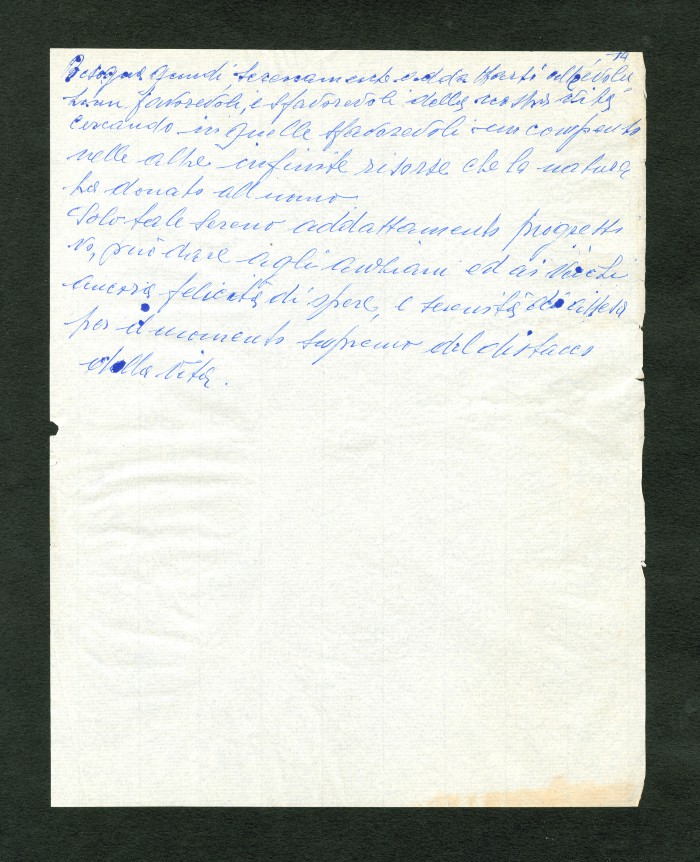 14
Bisogna quindi serenamente addattarsi alle évolu
zioni favorevoli, e sfavorevoli della nostra età
cercando in quelle sfavorevoli un compenso
nelle altre infinite risorse che la natura
ha donato all'uomo.
Solo tale sereno addattamento progressi
vo, può dare agli anziani ed ai vecchi
ancora felicità di spere, e serenità di attesa
per il momento supremo del distacco
dalla vita.